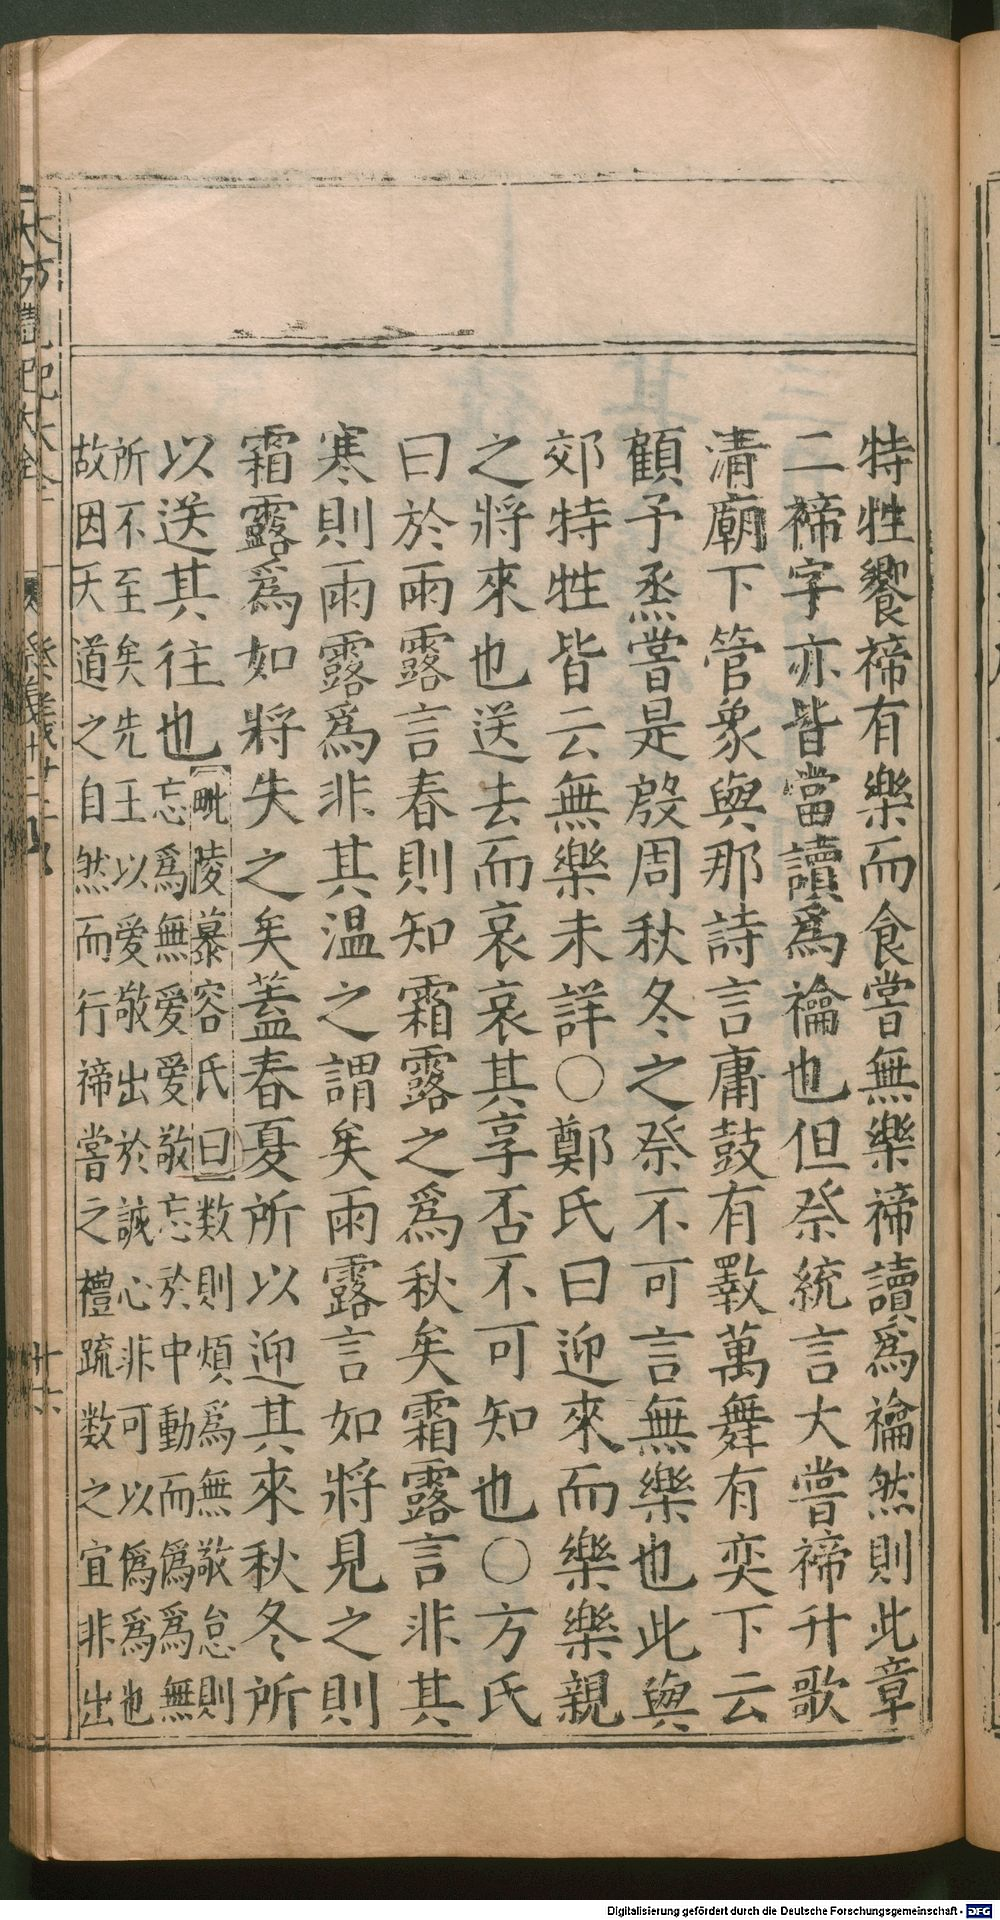 特牲饗禘有樂而食嘗無樂禘讀爲禴然則此章
二禘字亦皆當讀爲禴也但祭統言大嘗禘升歌
清廟下管象與那詩言庸鼓有斁萬舞有奕下云
顧予烝嘗是殷周秋冬之祭不可言無樂也此與
郊特牲皆云無樂未詳○鄭氏曰迎來而樂樂親
之將來也送去而哀哀其享否不可知也○方氏
曰於雨露言春則知霜露之爲秋矣霜露言非其
寒則雨露爲非其温之謂矣雨露言如將見之則
霜露爲如將失之矣蓋春夏所以迎其來秋冬所
以送其往也
毗陵慕容氏曰数則煩爲無敬怠則
忘爲無愛愛敬忘於中動而爲僞爲無
所不至矣先王以愛敬出於誠心非可以僞爲也
故因天道之自然而行禘嘗之禮疏数之宜非出
Digitalisierung gefördert durch die Deutsche Forschungsgemeinschaft - DFG